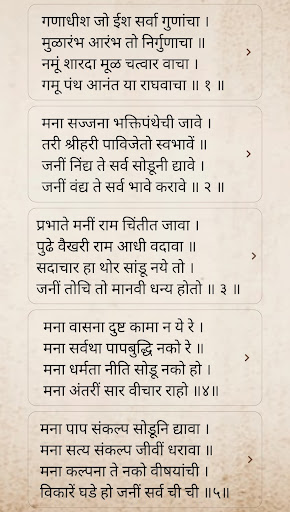 गणाधीश जो ईश सर्वा गुणांचा ।
मुळारंभ आरंभ तो निर्गुणाचा ॥
नमूं शारदा मूळ चत्वार वाचा ।
गमू पंथ आनंत या राघवाचा ॥ १ ॥
मना सज्जना भक्तिपंथेची जावे ।
तरी श्रीहरी पाविजेतो स्वभावें ॥
जनीं निंद्य ते सर्व सोडूनी द्यावे ।
जनीं वंद्य ते सर्व भावे करावे ॥ २ ॥
प्रभाते मनीं राम चिंतीत जावा ।
पुढे वैखरी राम आधी वदावा ॥
सदाचार हा थोर सांडू नये तो ।
जनीं तोचि तो मानवी धन्य होतो ॥ ३ ॥
मना वासना दुष्ट कामा न ये रे ।
मना सर्वथा पापबुद्धि नको रे ॥
मना धर्मता नीति सोडू नको हो ।
मना अंतरीं सार वीचार राहो ॥४॥
मना पाप संकल्प सोडूनि द्यावा ।
मना सत्य संकल्प जीवीं धरावा ॥
मना कल्पना ते नको वीषयांची ।
विकारें घडे हो जनीं सर्व ची ची ॥५॥